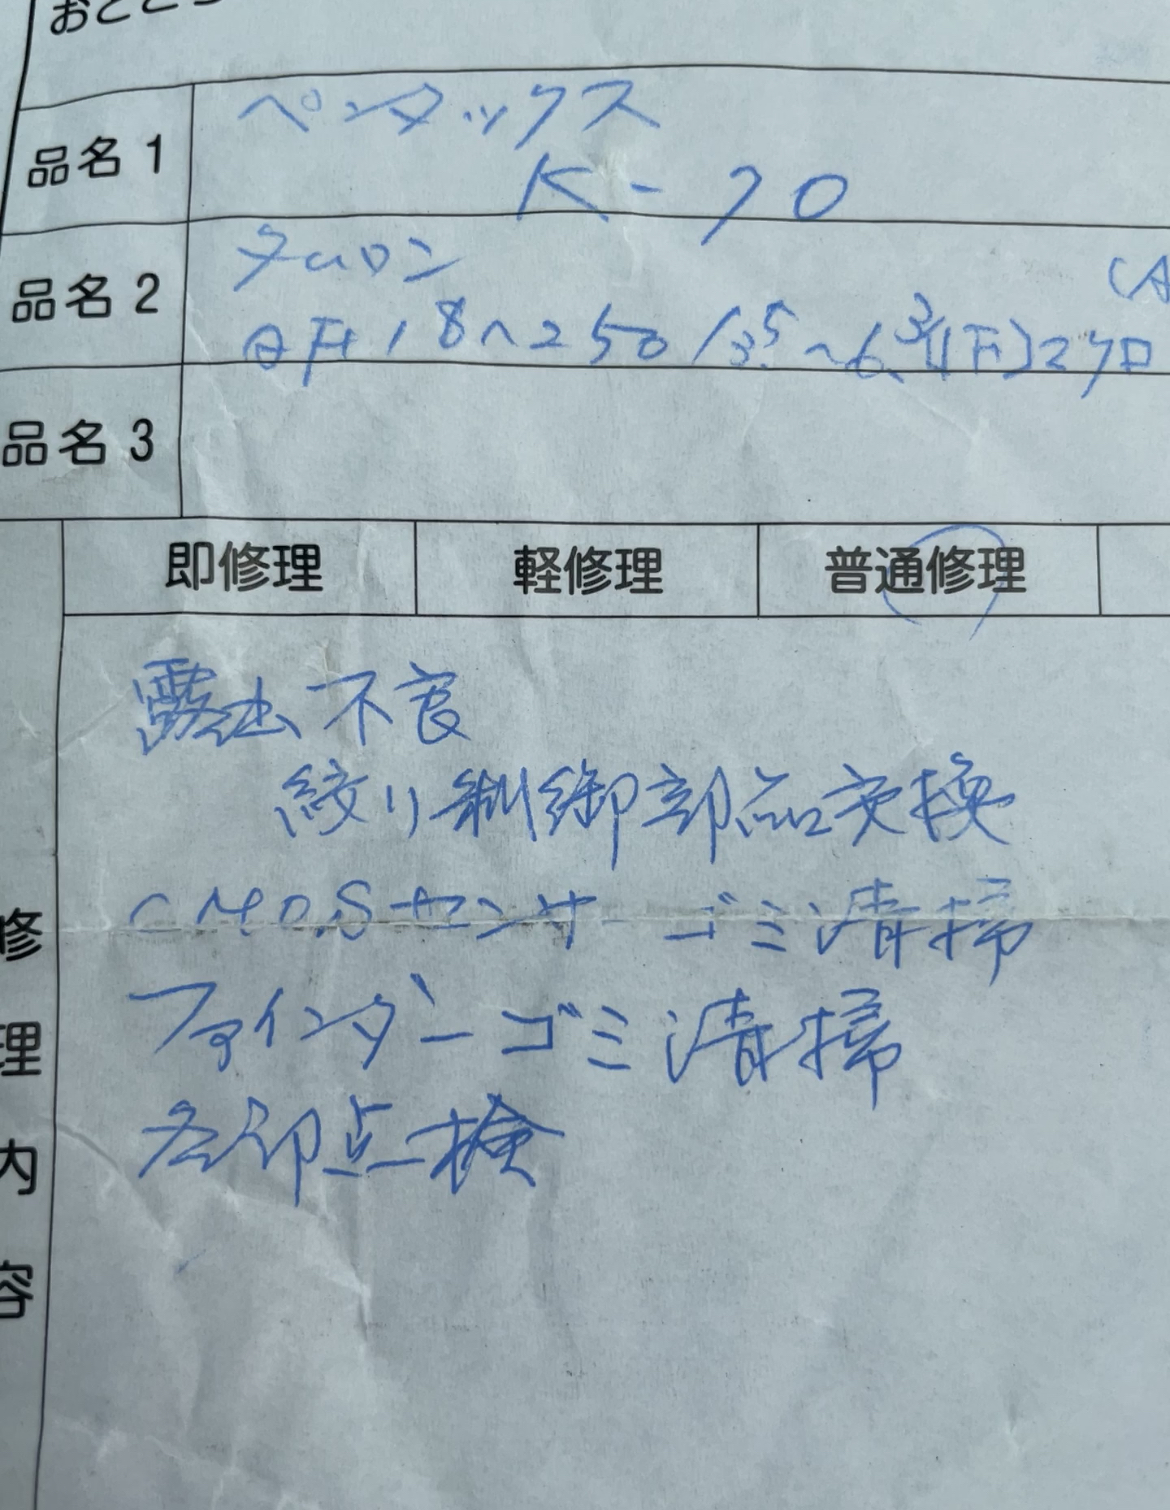 おところ
品名1
ペンタックス
K-70
品名2
タムロン
(A
AF 18~250/3.5~6.3
品名3
即修理 軽修理 普通修理
修理内容
露出不良
絞り制御部品交換
CMOSセンサーゴミ清掃
ファインダーゴミ清掃
各部点検